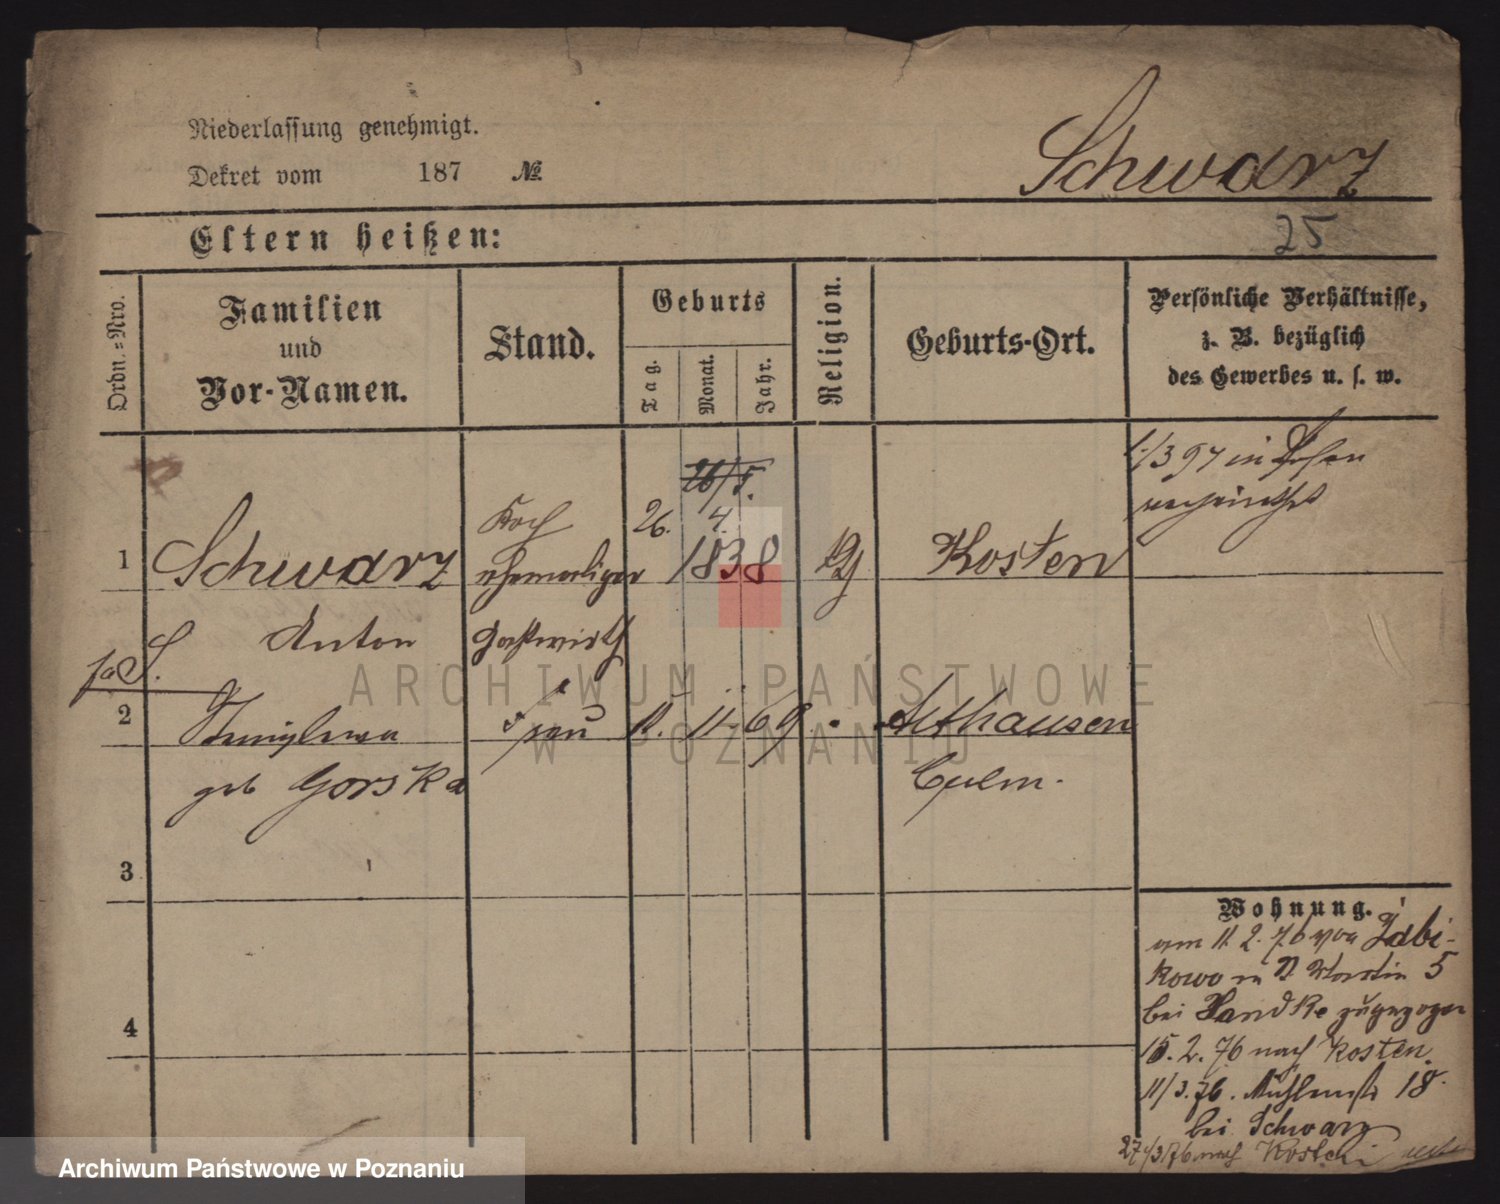 Niederlassung genehmigt.
Schwarz
Dekret vom 187 №
25
Eltern heißen:
Ordn.=Nro.
Familien
und
Vor-Namen.
Stand.
Geburts
Tag.
Monat.
Jahr.
Religion.
Geburts-Ort.
Persönliche Verhältnisse,
z. B. bezüglich
des Gewerbes u. s. w.
1/3 97 in Posen
verheirathet
26/5.
Koch 26. 4.
1 Schwarz ehemaliger 1838 Kosten
Anton Gastwirth
2 Frau 11. 11. 69 Althausen
geb Gorska Culm.
3
Wohnung.
am 11. 2. 76 von Zabi-
kowo St. Martin 5
bei Handke zugezogen
4
15. 2. 76 nach Kosten.
11/3. 76. Mühlenstr 18.
bei Schwarz
27/3 76 nach Kosten
ARCHIWUM PAŃSTWOWE
W POZNANIU
Archiwum Państwowe w Poznaniu